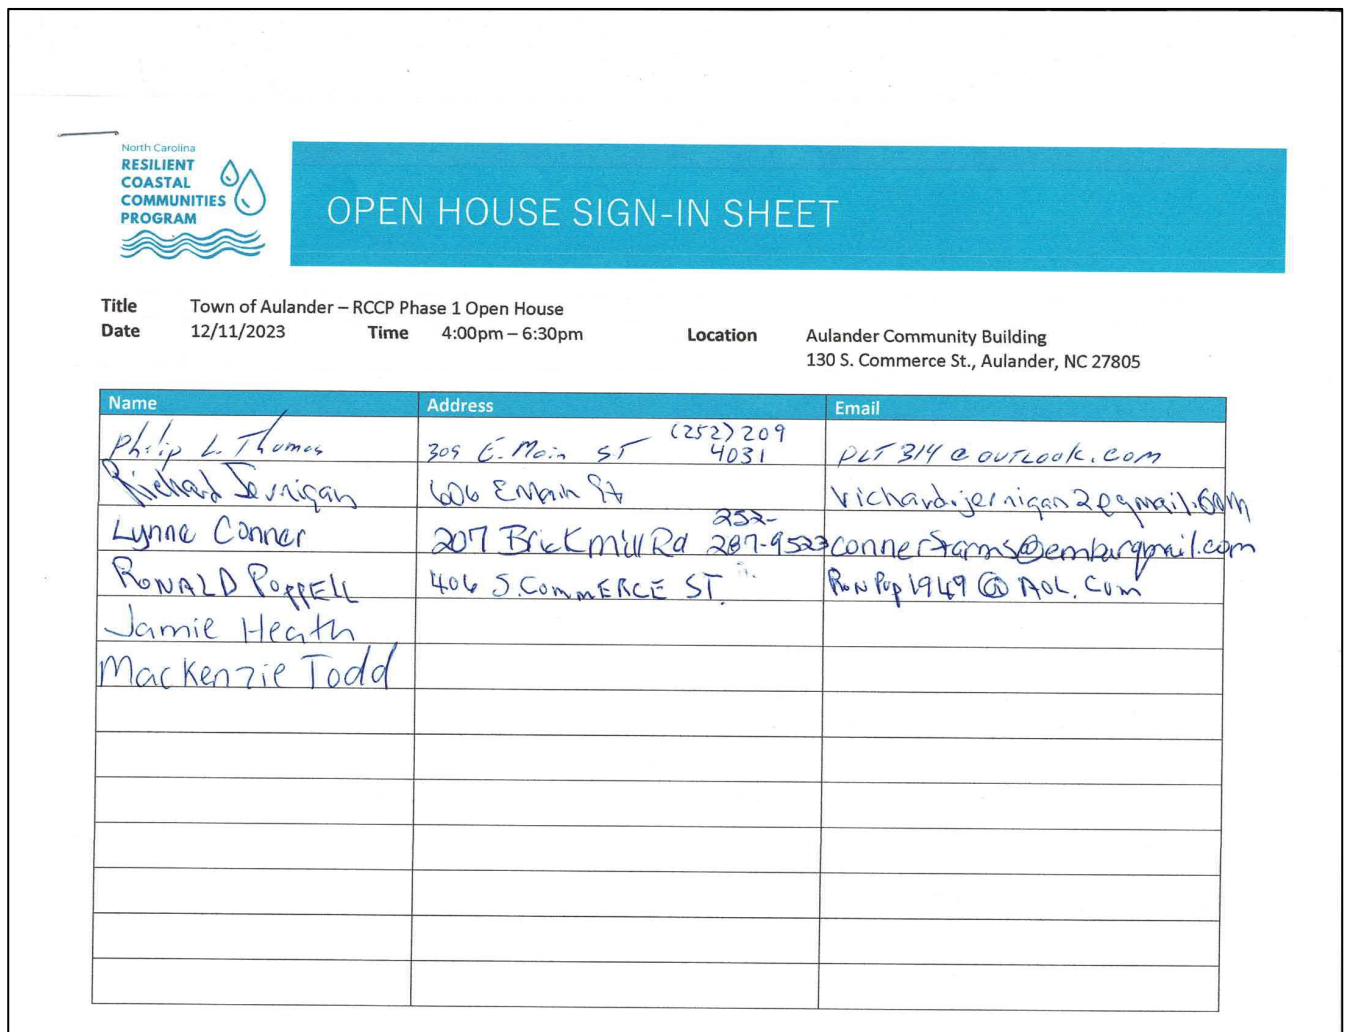 North Carolina
RESILIENT
COASTAL
COMMUNITIES
PROGRAM
OPEN HOUSE SIGN-IN SHEET
Title Town of Aulander – RCCP Phase 1 Open House
Date 12/11/2023 Time 4:00pm – 6:30pm Location Aulander Community Building
130 S. Commerce St., Aulander, NC 27805
Name Address Email
Philip L. Thomas 309 E. Main ST (252) 209 4031 PLT 314 @ OUTLOOK.COM
Richard Jernigan 606 E Main St richard.jernigan2@gmail.com
Lynne Conner 207 Brickmill Rd 252-287-9523 connerfarms@embarqmail.com
RONALD POPPELL 406 S. COMMERCE ST. RonPop1949@AOL.Com
Jamie Heath
Mackenzie Todd